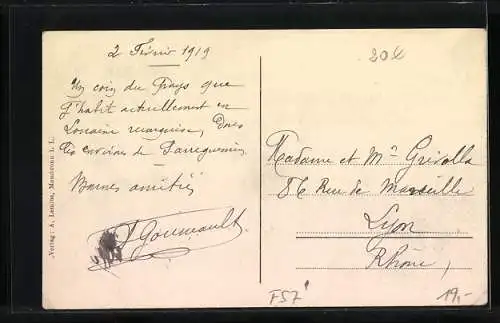 2 Février 1919
Un coin du Pays que
J'habit actuellement en
Lorraine , dans
les environs de Sarreguemines
Bonnes amitiés
J Gouneault
Verlag: A. Lonsins, Mondorf i. L.
20L
Madame et Mr Grivolla
86 Rue de Marseille
Lyon
Rhône,
F57
19,-